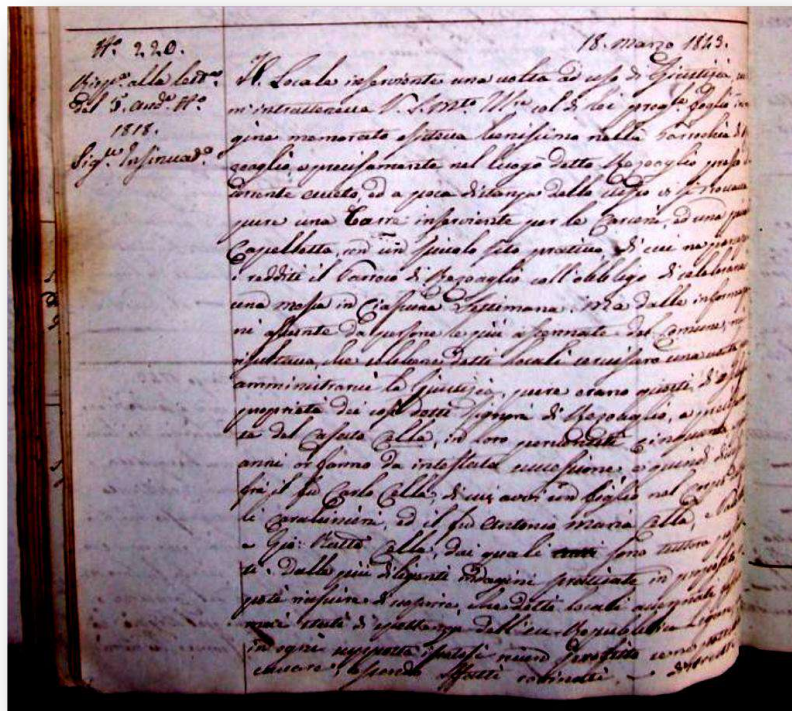 N.º 220.
Risp.ª alla lett.ª
del 5. and.e N.º
1818.
Sig.r Insinuad.e
18. Marzo 1843.
Il Locale inserviente una volta ad uso di Giustizia,
m'intratteneva V. S. M.to Ill.re col di lei preg.le foglio in
gine memorato esisteva benissimo nella Parrochia di
zoaglio, e precisamente nel luogo detto Rezoaglio presso
torrente Aveto, ed a poca distanza dallo stesso vi si trovava
pure una Torre inserviente per le Carceri, ed una
Capelletta, con un piccolo sito prativo, di cui ne
i redditi il Parroco di Rezoaglio coll'obbligo di celebrare
una messa in ciascuna Settimana. Ma dalle
assunte da persone le più assennate del Comune,
risultava, che sebbene detti locali servissero una volta
amministrarvi la Giustizia, pure erano questi di
proprietà dei così detti Signori di Rezoaglio, e
del Casato Cella, in loro cinquanta
anni or sono da intestata successione, e quindi
fra il fu Carlo Cella, di cui avvi un figlio nel Corpo
di Carabiniera, ed il fu Antonio Maria Cella,
e Gio: Batta Cella, dai quali sono tuttora
Dalle più diligenti indagini praticate in proposito
potei riuscire di scoprire, che detti locali
mai stati di spettanza dell'ex Repubblica Ligure
in ogni niun
essendo affatto rovinati.